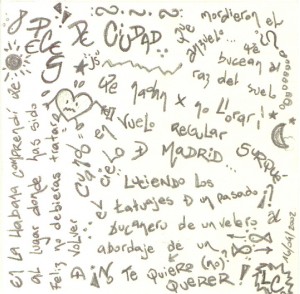 PECES DE CIUDAD
que mordieron el
anzuelo... que
bucean al
ras del suelo
que no x no llorar!
en vuelo
regular
el cielo D MADRID...
Luciendo los
tatuajes D un pasado
bucanero de un velero al
abordaje de un
D TE QUIERE (no)
QUERER!
TLC
En La Habana comprendí que
al lugar donde has sido
Feliz no debieras tratar
volver